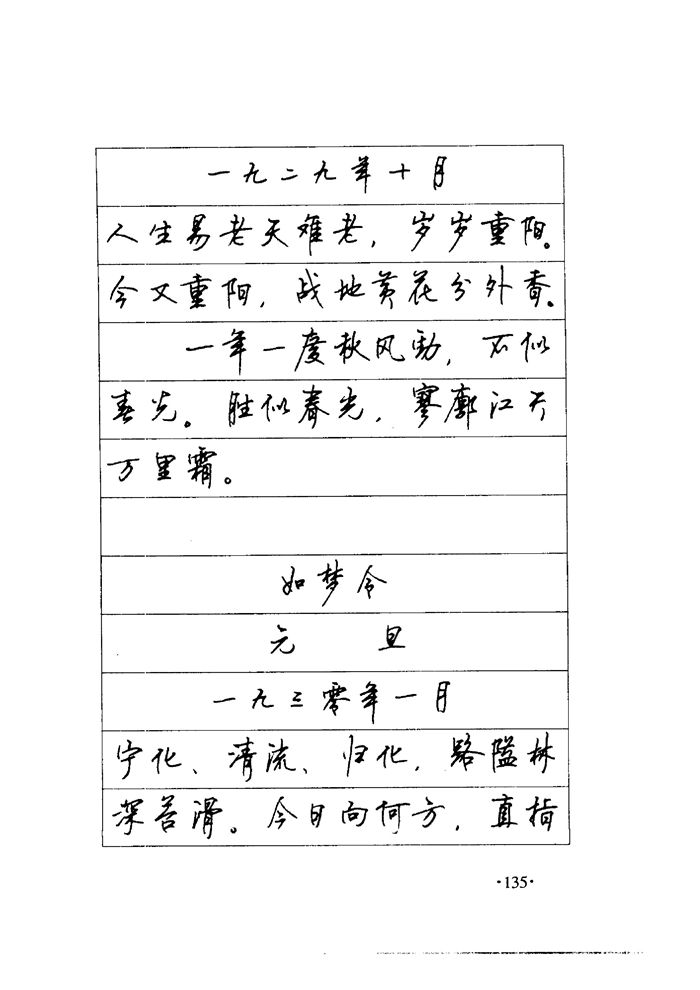 一九二九年十月
人生易老天难老，岁岁重阳。
今又重阳，战地黄花分外香。
一年一度秋风劲，不似
春光。胜似春光，寥廓江天
万里霜。
如梦令
元 旦
一九三零年一月
宁化、清流、归化，路隘林
深苔滑。今日向何方，直指
·135·